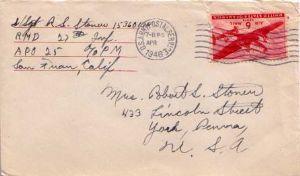 S/Sgt R.S. Stoner
RHD 27th Inf.
APO 25 % PM
San Fran, Calif
U.S. ARMY POSTAL SERVICE
APR
1946
UNITED STATES OF AMERICA
AIR MAIL
6¢
Mrs. Robert S. Stoner
433 Lincoln Street
York Penna,
U. S. A